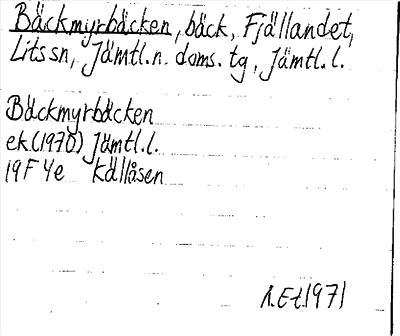 Bäckmyrbäcken, bäck, Fjällandet,
Lits sn, Jämtl.n. doms. tg, Jämtl. l.
Bäckmyrbäcken
ek.(1970) Jämtl.l.
19F 4e Källåsen
1971